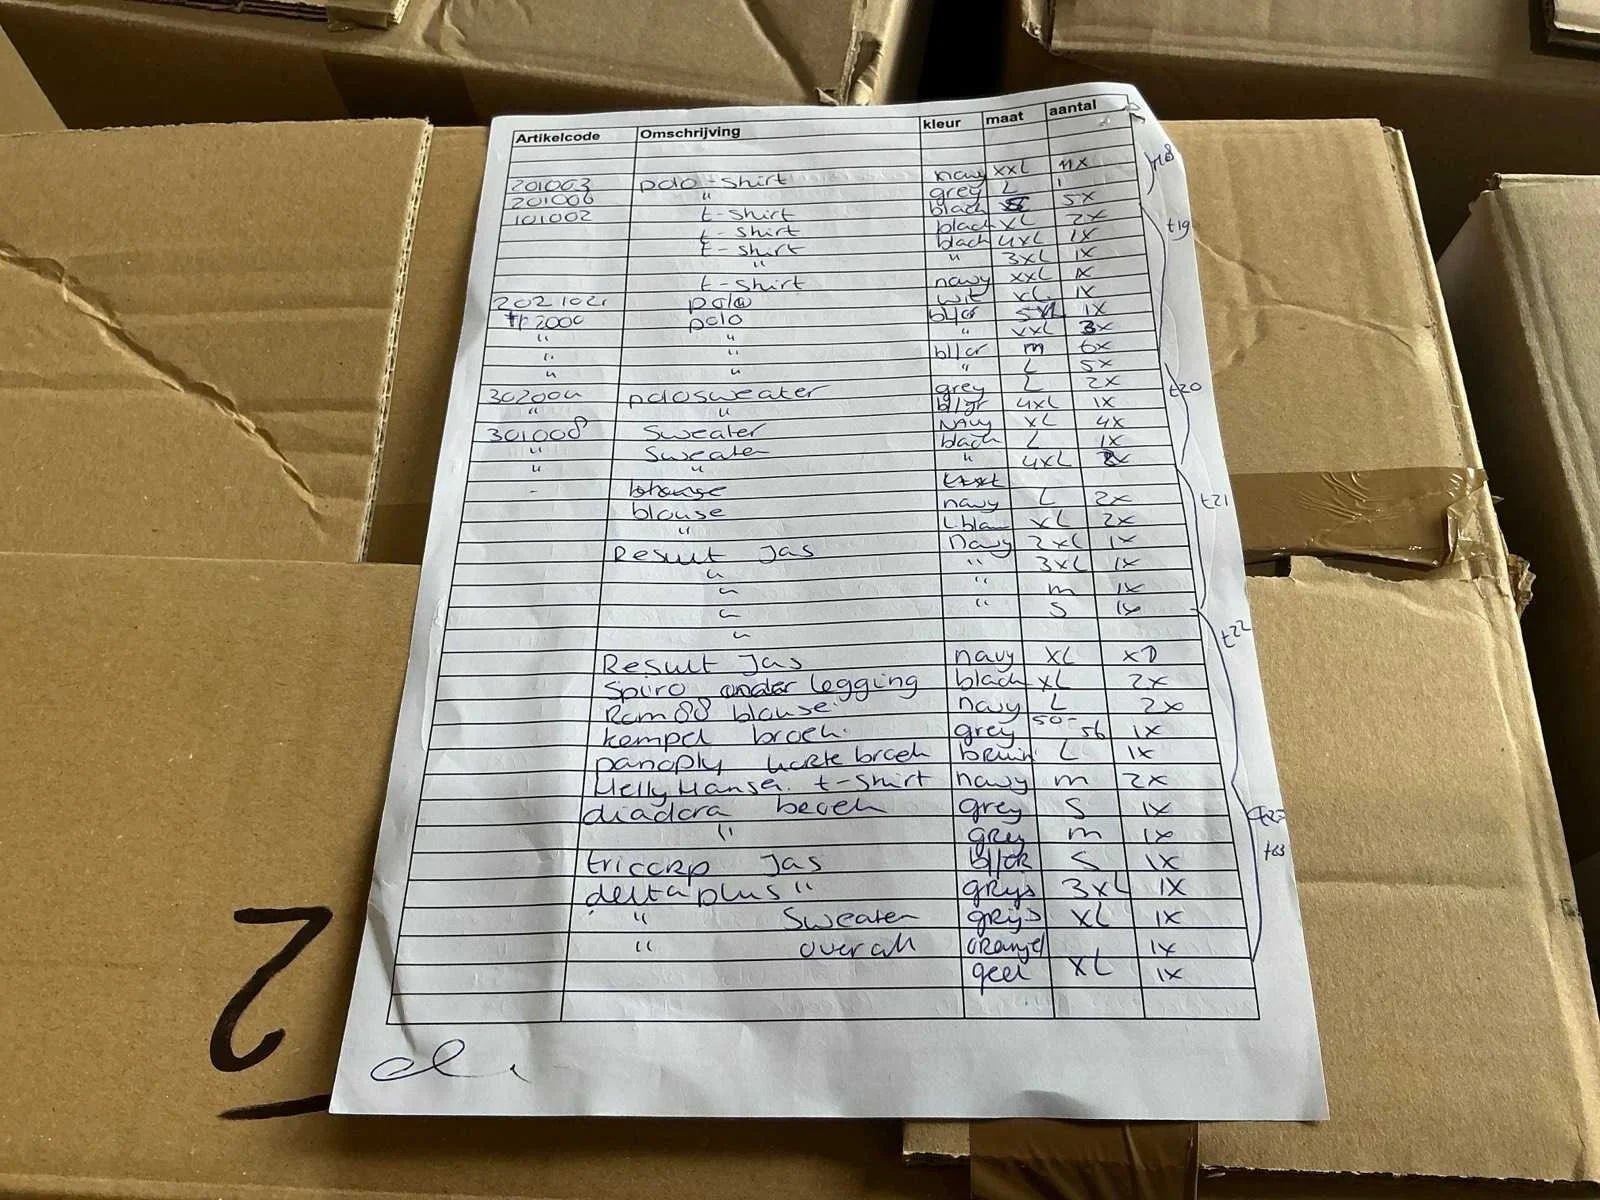 Artikelcode Omschrijving kleur maat aantal
201003 polo-shirt navy XXL 4x
201006 " grey L 1
101002 t-shirt black 5x
t-shirt black XL 2x
t-shirt black 4XL 1x
" " 3XL 1x
t-shirt navy XXL 1x
polo wit XL 1x
2000 polo bl/gr 5XL 1x
" " " XXL 3x
" " bl/gr m 6x
" " " L 5x
302004 polosweater grey L 2x
" " bl/gr 4XL 1x
301008 Sweater NAVY XL 4x
" Sweater black L 1x
" " " 4XL
blouse
blouse navy L 2x
" XL 2x
Result Jas Navy 2XL 1x
" " 3XL 1x
" " m 1x
" " S 1x
"
Result Jas navy XL
Spiro onder legging black XL 2x
blouse navy L 2x
broek grey 50-56 1x
panoply korte broek bruin L 1x
Helly Hansen t-shirt navy m 2x
diadora broek grey S 1x
" grey m 1x
tricorp Jas bl/gr S 1x
deltaplus " grys 3XL 1x
" Sweater grijs XL 1x
" overall oranje/ 1x
geel XL 1x
t18
t19
t20
t21
t22
t23
2